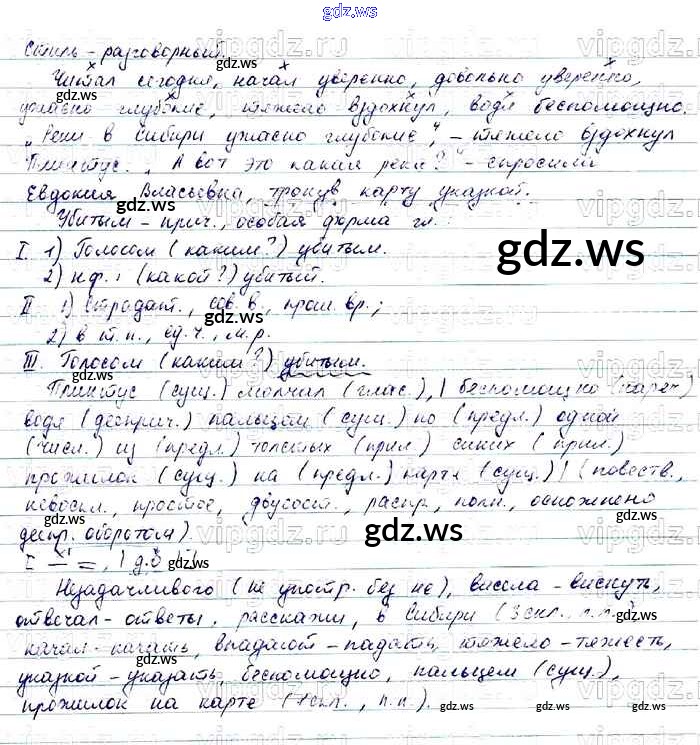 gdz.ws
Стиль – разговорный.
Читал сегодня, начал уверенно, довольно уверенно,
ужасно глубокие, тяжело вздохнул, водя беспомощно.
„Реки в Сибири ужасно глубокие", – тяжело вздохнул
Плинтус. „А вот это какая река?" – спросила
Евдокия Власьевна, тронув карту указкой.
Убитым – прич., особая форма гл.:
I. 1) Голосом (каким?) убитым.
2) н.ф.: (какой?) убитый.
II 1) Страдат., сов.в., прош.вр.;
2) в т.п., ед.ч., м.р.
III. Голосом (каким?) убитым.
Плинтус (сущ.) молчал (глаг.), | беспомощно (нареч)
водя (дееприч.) пальцем (сущ.) по (предл.) одной
(числ.) из (предл.) толстых (прил.) синих (прил.)
прожилок (сущ.) на (предл.) карте (сущ.) | (повеств.,
невоскл., простое, двусост., распр., полн., осложнено
деепр. оборотом)
Незадачливого (не употр. без не), висела – виснуть,
отвечал – ответы, расскажи, в Сибири (3 скл., п.п.),
начал – начать, впадают – падать, тяжело – тяжесть,
указкой – указать, беспомощно, пальцем (сущ.),
прожилок на карте (1 скл., п.п.).
gdz.ws